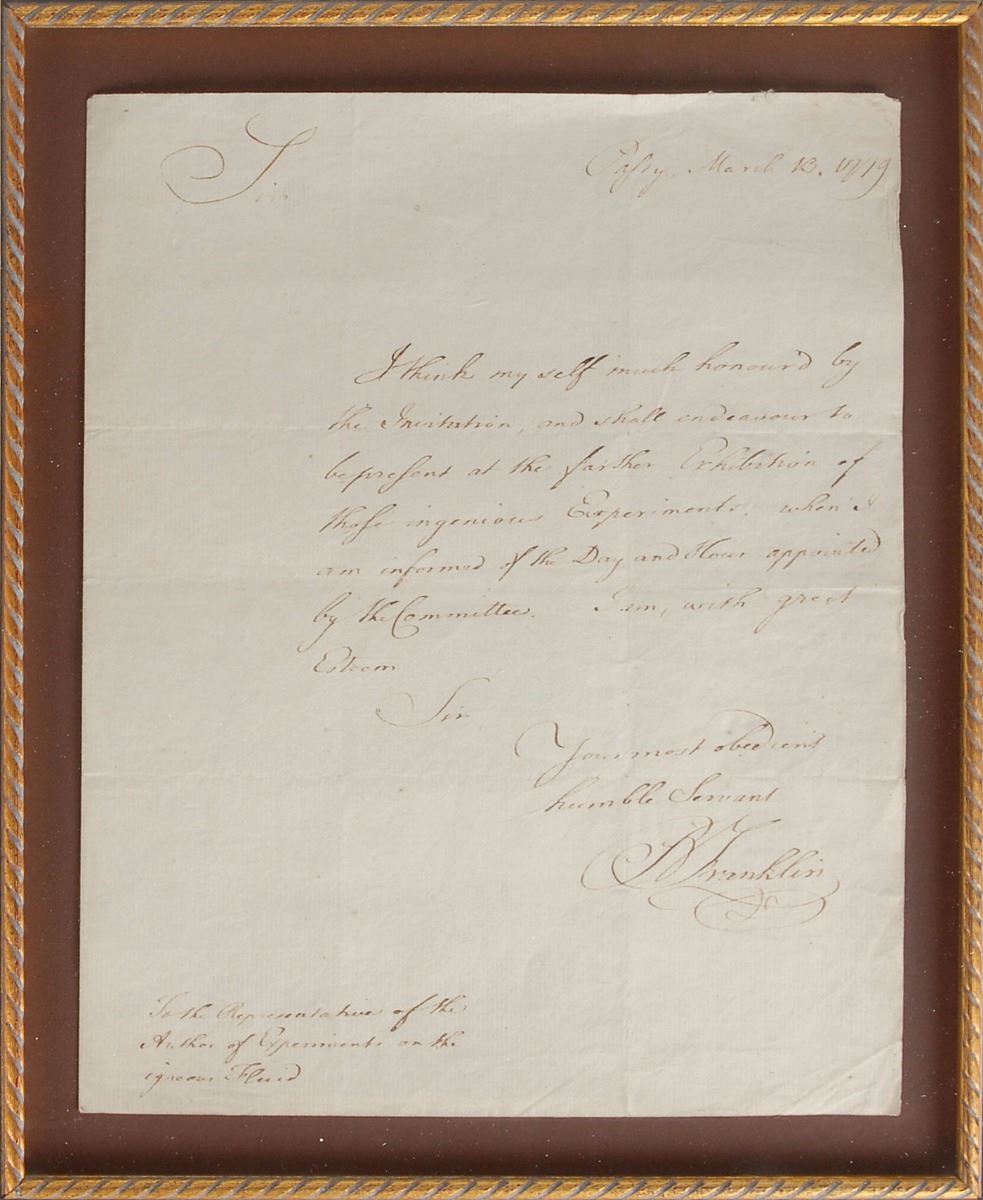 Sir
Passy, March 13. 1779
I think my self much honour'd by
the Invitation, and shall endeavour to
be present at the farther Exhibition of
those ingenious Experiments, when I
am informed of the Day and Hour appointed
by the Committee. I am, with great
Esteem
Sir
Your most obedient
humble Servant
B Franklin
To the Representative of the
Author of Experiments on the
igneous Fluid